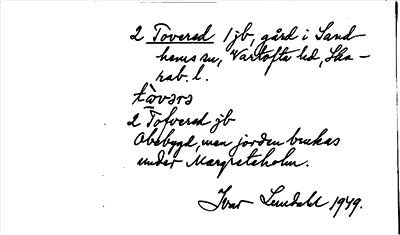 2 Tovered 1 jb, gård i Sand-
hems sn, Vartofta hd, Ska-
rab. l.
tòvərə
2 Tofvered jb
Obebygd, men jorden brukas
under Margreteholm.
Ivar Lundahl 1949.